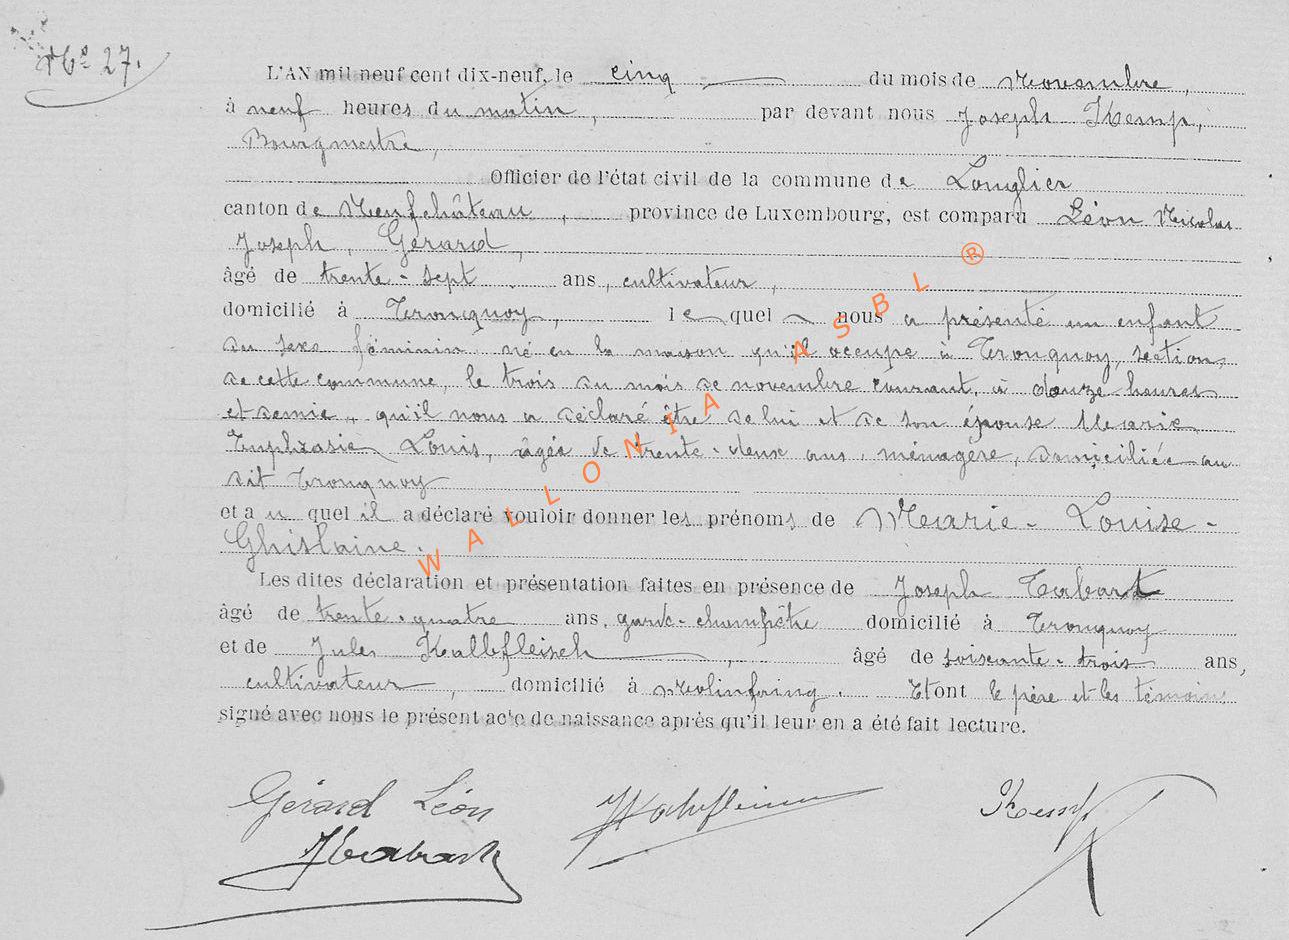 No 27.
L'AN mil neuf cent dix-neuf, le cinq du mois de Novembre,
à neuf heures du matin, par devant nous Joseph Kemp,
Bourgmestre,
Officier de l'état civil de la commune de Longlier
canton de Neufchâteau, province de Luxembourg, est comparu Léon Nicolas
Joseph, Gérard,
âgé de trente-sept ans, cultivateur,
domicilié à Tronquoy, lequel nous a présenté un enfant
du sexe féminin né en la maison qu'il occupe à Tronquoy, section
de cette commune, le trois du mois de novembre courant, à douze heures
et demie, qu'il nous a déclaré être de lui et de son épouse Marie
Euphrasie Louis, âgée de trente-deux ans, ménagère, domiciliée au
dit Tronquoy
et au quel il a déclaré vouloir donner les prénoms de Marie-Louise-
Ghislaine.
Les dites déclaration et présentation faites en présence de Joseph Tabart
âgé de trente-quatre ans, garde-champêtre domicilié à Tronquoy
et de Jules Kalbfleisch, âgé de soixante-trois ans,
cultivateur, domicilié à Molinfaing. Et ont le père et les témoins
signé avec nous le présent acte de naissance après qu'il leur en a été fait lecture.
Gérard Léon
Kemp
WALLONIA ASBL ®